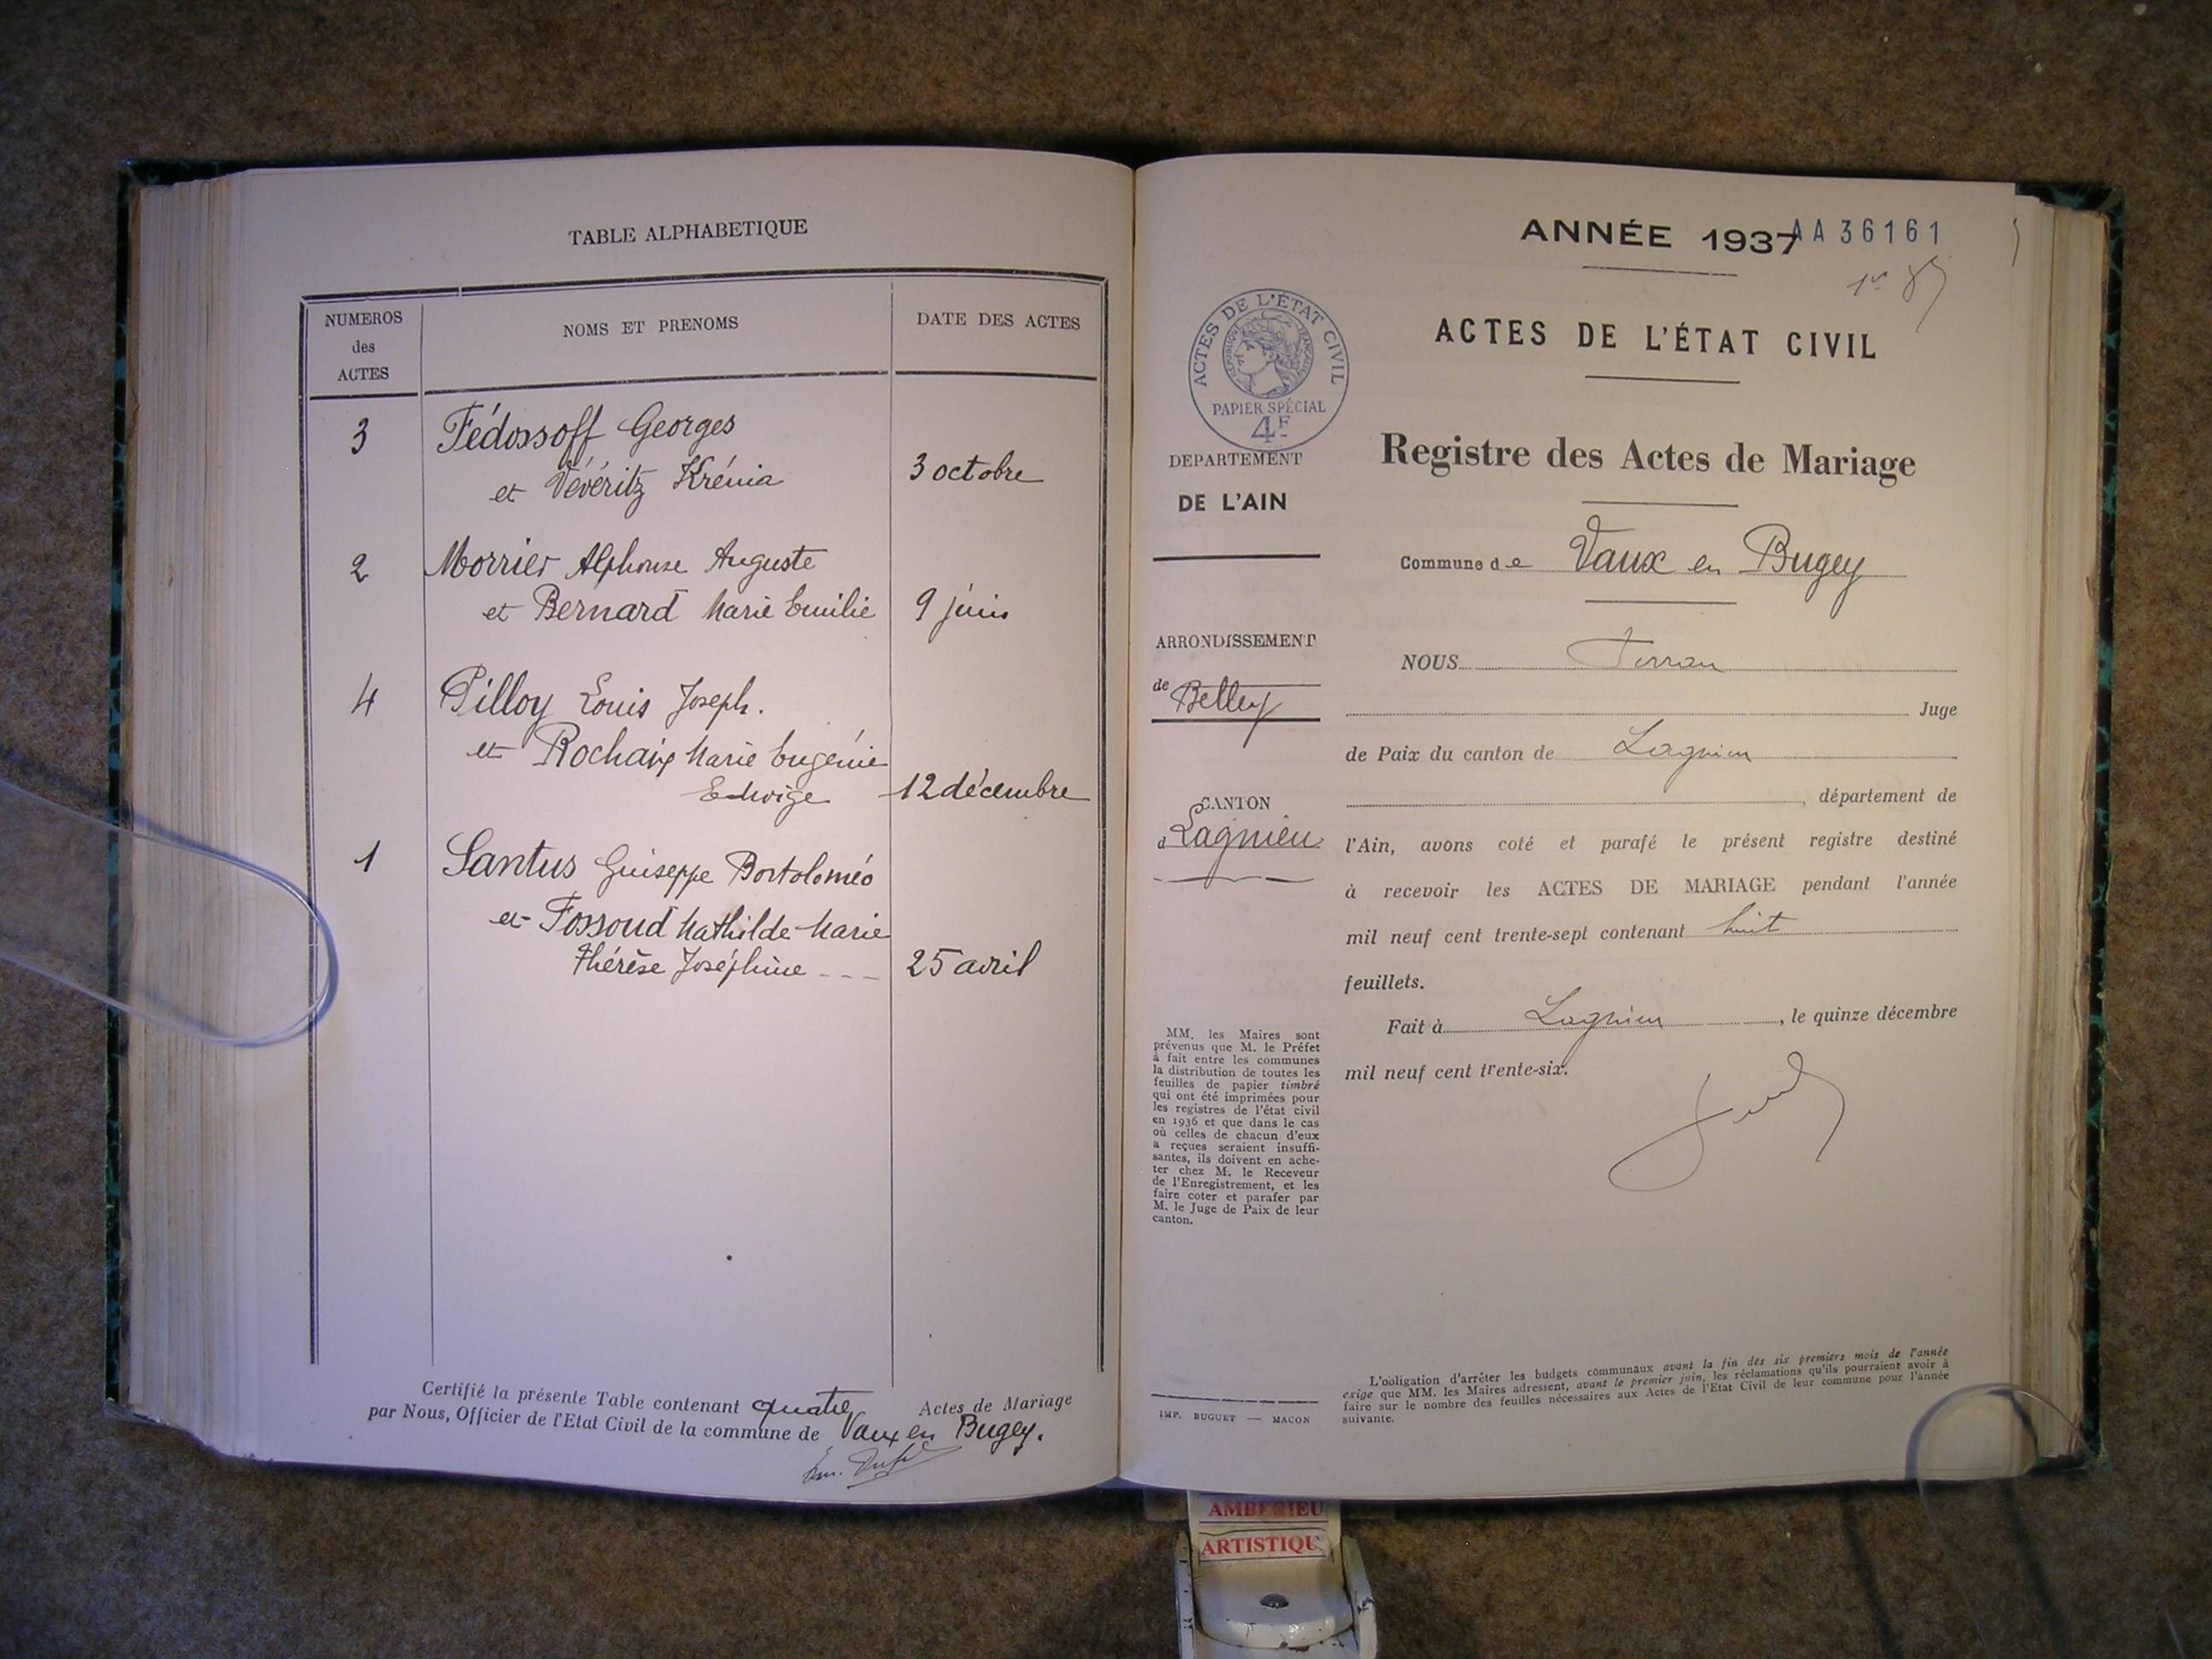 TABLE ALPHABETIQUE
NUMEROS
des
ACTES
NOMS ET PRENOMS
DATE DES ACTES
3 Fédossoff Georges
et Vévéritz Krénia 3 octobre
2 Morrier Alphonse Auguste
et Bernard Marie Emilie 9 juin
4 Pilloy Louis Joseph.
et Rochaix Marie Eugénie
Edwige 12 décembre
1 Santus Guiseppe Bortoloméo
et Fossoud Mathilde Marie
Thérèse Joséphine --- 25 avril
Certifié la présente Table contenant quatre Actes de Mariage
par Nous, Officier de l'Etat Civil de la commune de Vaux en Bugey.
ANNÉE 1937
AA 36161
ACTES DE L'ÉTAT CIVIL
ACTES DE L'ÉTAT CIVIL
RÉPUBLIQUE FRANÇAISE
PAPIER SPÉCIAL
4F
DEPARTEMENT
DE L'AIN
Registre des Actes de Mariage
Commune de Vaux en Bugey
ARRONDISSEMENT
de Belley
CANTON
d Lagnieu
NOUS
Juge
de Paix du canton de Lagnieu
, département de
l'Ain, avons coté et parafé le présent registre destiné
à recevoir les ACTES DE MARIAGE pendant l'année
mil neuf cent trente-sept contenant huit
feuillets.
Fait à Lagnieu, le quinze décembre
mil neuf cent trente-six.
MM. les Maires sont
prévenus que M. le Préfet
à fait entre les communes
la distribution de toutes les
feuilles de papier timbré
qui ont été imprimées pour
les registres de l'état civil
en 1936 et que dans le cas
où celles de chacun d'eux
a reçues seraient insuffi-
santes, ils doivent en ache-
ter chez M. le Receveur
de l'Enregistrement, et les
faire coter et parafer par
M. le Juge de Paix de leur
canton.
IMP. BUGUET — MACON
L'obligation d'arrêter les budgets communaux avant la fin des six premiers mois de l'année
exige que MM. les Maires adressent, avant le premier juin, les réclamations qu'ils pourraient avoir à
faire sur le nombre des feuilles nécessaires aux Actes de l'Etat Civil de leur commune pour l'année
suivante.
AMBERIEU
ARTISTIQU